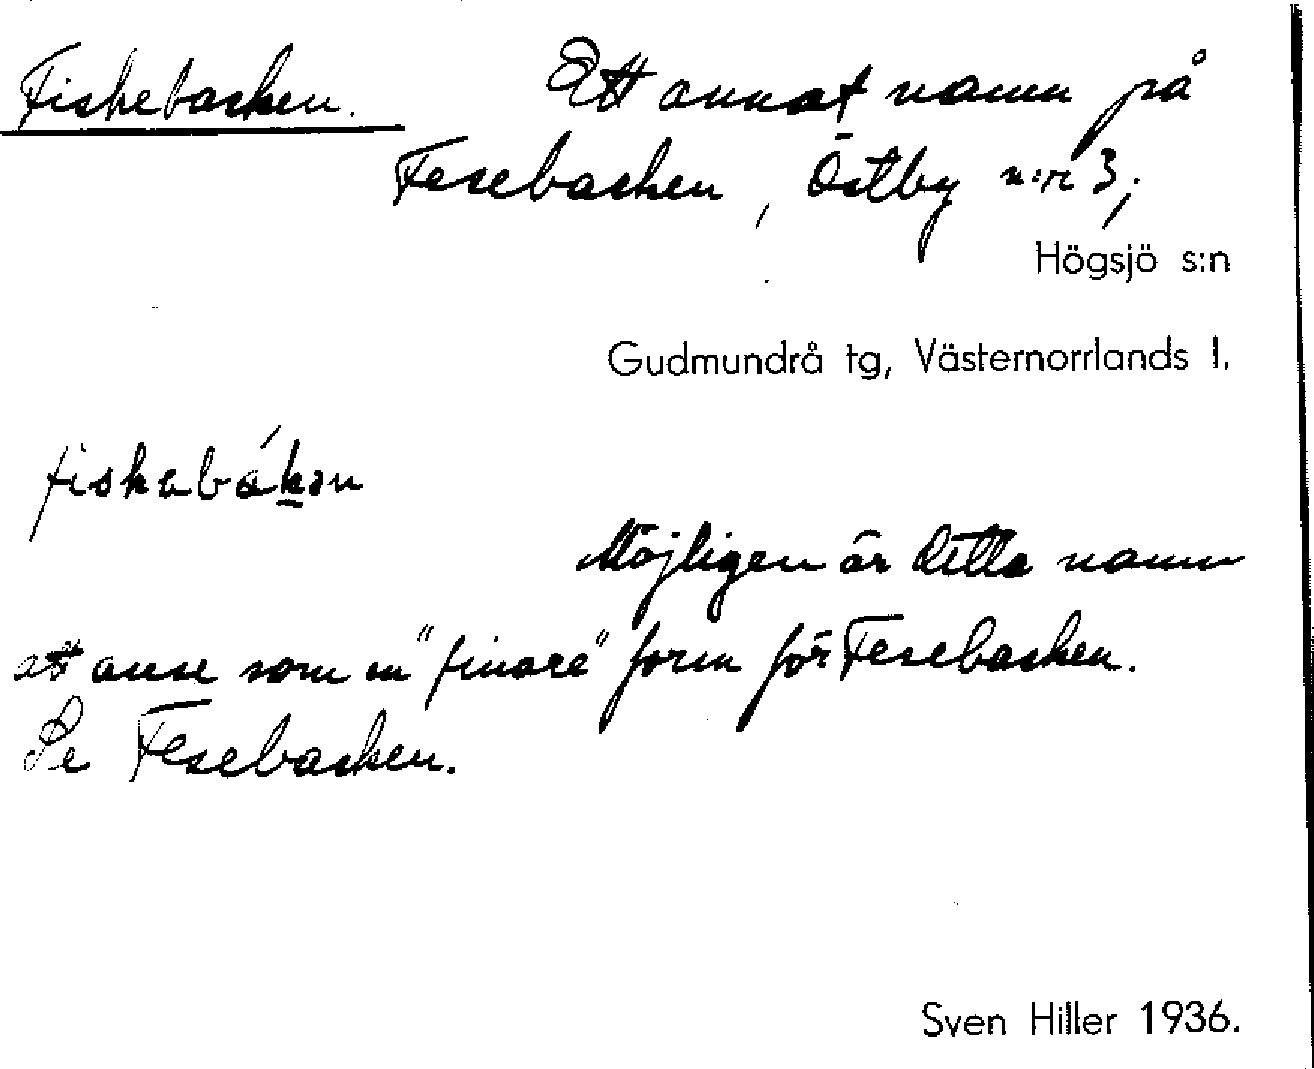 Fiskebacken. Ett annat namn på
Fesebacken, Östby n:r 3;
Högsjö s:n
Gudmundrå tg, Västernorrlands l.
fiskabákən
Möjligen är detta namn
att anse som en "finare" form för Fesebacken.
Se Fesebacken.
Sven Hiller 1936.